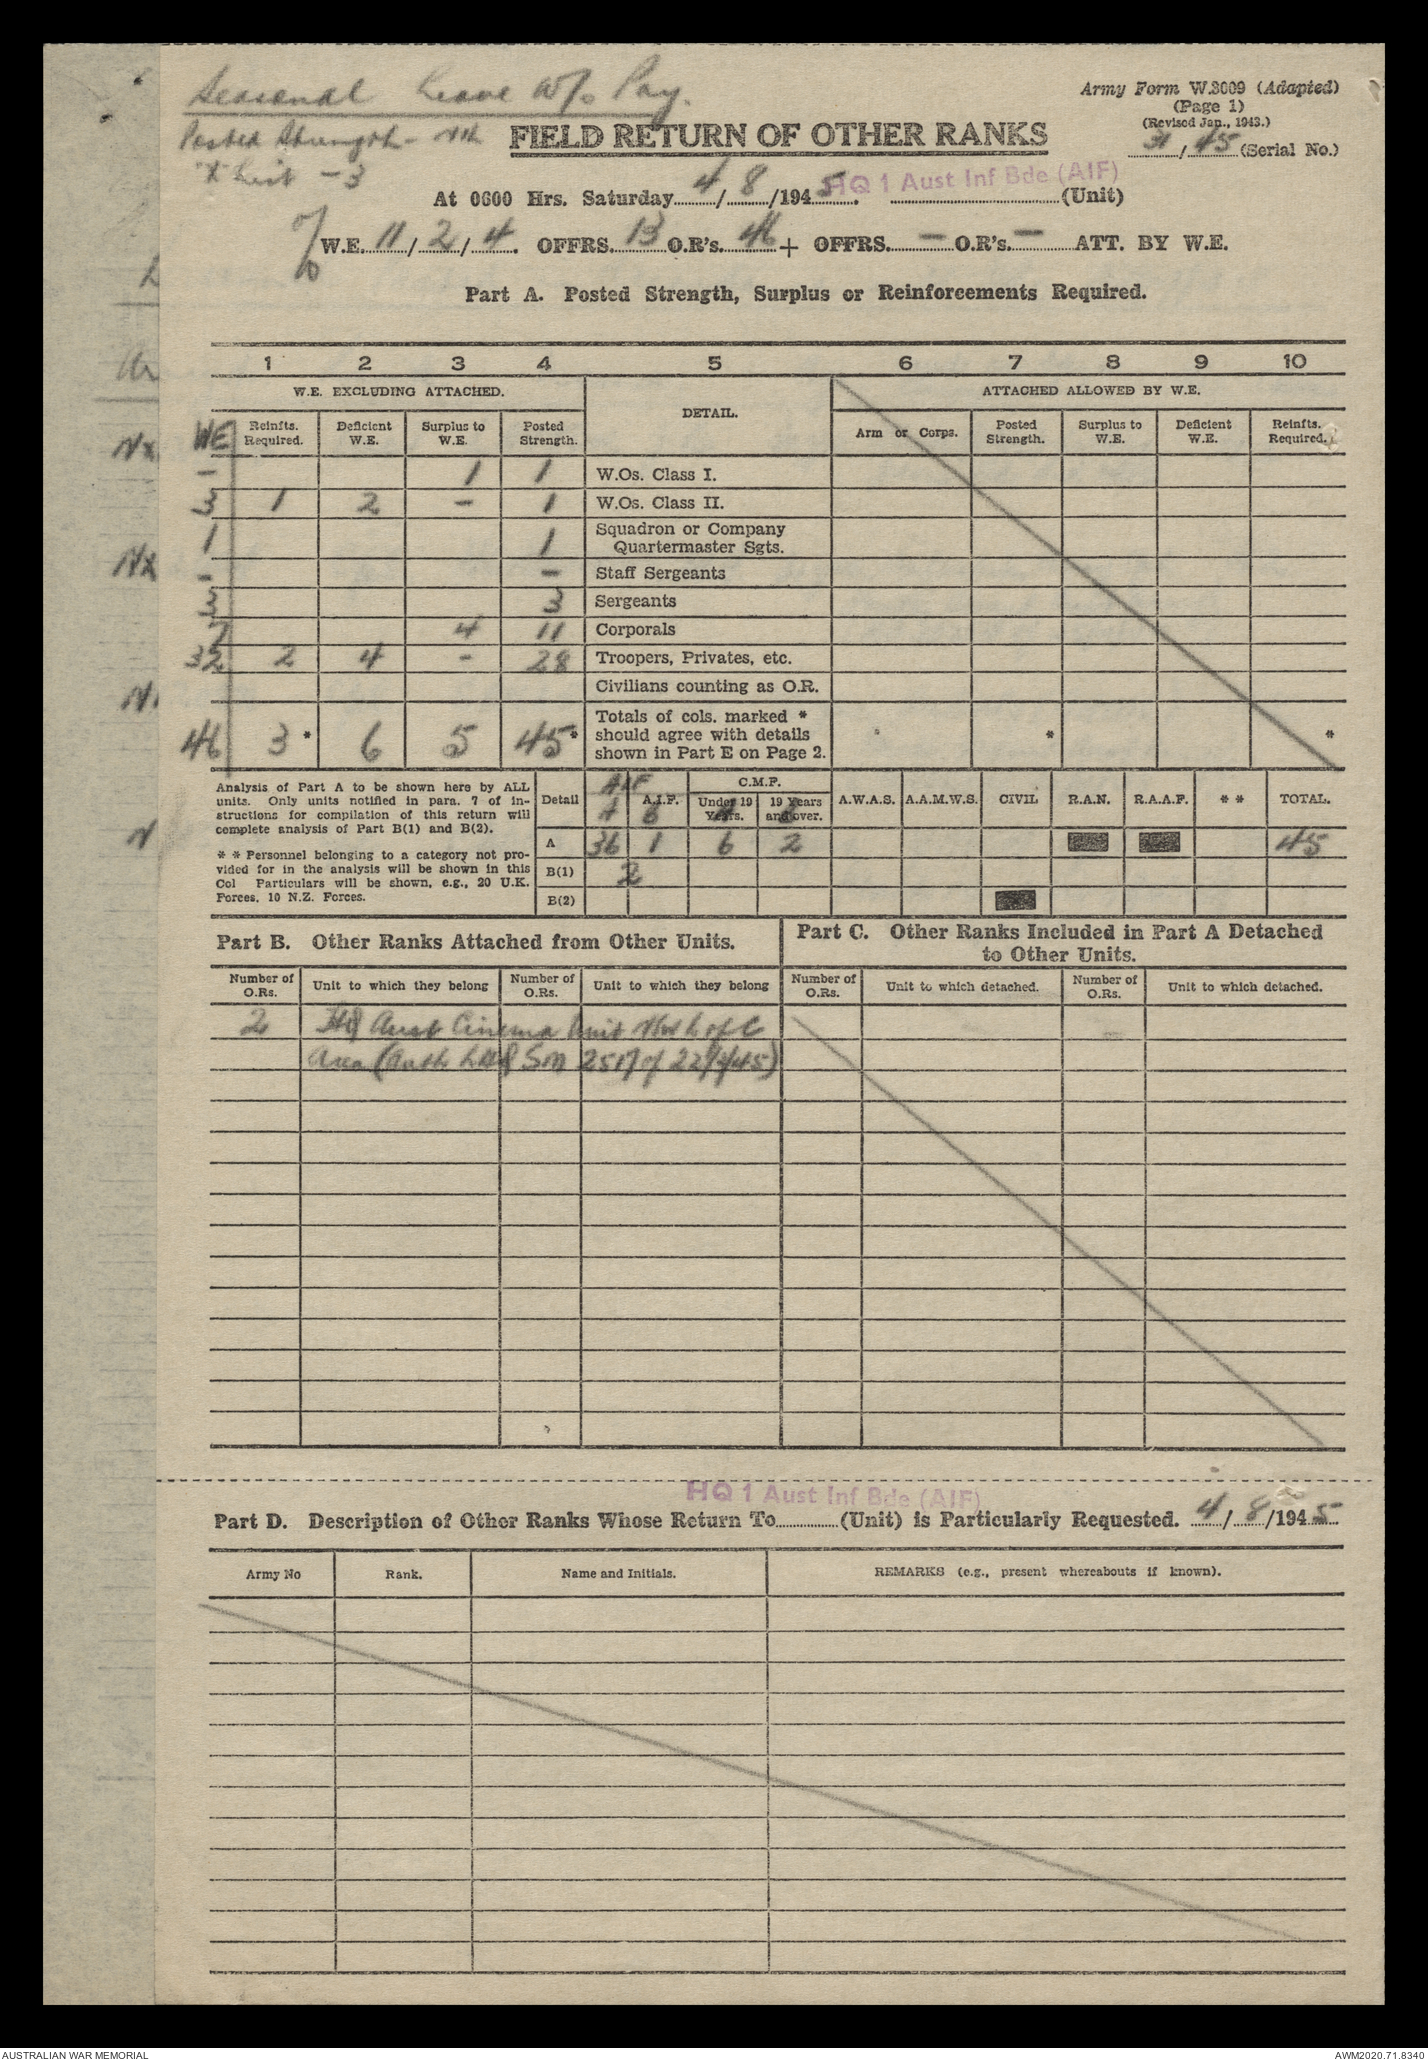 Seasonal Leave w/o Pay.
Posted Strength - Nil
"X" List - 3
Army Form W.3009 (Adapted)
(Page 1)
(Revised Jan., 1943.)
31/45 (Serial No.)
FIELD RETURN OF OTHER RANKS
At 0600 Hrs. Saturday 4/8/1945. HQ 1 Aust Inf Bde (AIF) (Unit)
W.E. 11/2/4. OFFRS. 13 O.R's. 46 + OFFRS. — O.R's. — ATT. BY W.E.
Part A. Posted Strength, Surplus or Reinforcements Required.
1 2 3 4 5 6 7 8 9 10
W.E. EXCLUDING ATTACHED. DETAIL. ATTACHED ALLOWED BY W.E.
WE Reinfts. Required. Deficient W.E. Surplus to W.E. Posted Strength. Arm or Corps. Posted Strength. Surplus to W.E. Deficient W.E. Reinfts. Required.
- 1 1 W.Os. Class I.
3 1 2 - 1 W.Os. Class II.
1 1 Squadron or Company
Quartermaster Sgts.
- - Staff Sergeants
3 3 Sergeants
7 4 11 Corporals
32 2 4 - 28 Troopers, Privates, etc.
Civilians counting as O.R.
46 3 * 6 5 45 * Totals of cols. marked *
should agree with details
shown in Part E on Page 2. * *
Analysis of Part A to be shown here by ALL
units. Only units notified in para. 7 of in-
structions for compilation of this return will
complete analysis of Part B(1) and B(2).
* * Personnel belonging to a category not pro-
vided for in the analysis will be shown in this
Col Particulars will be shown, e.g., 20 U.K.
Forces, 10 N.Z. Forces.
Detail AIF A.I.F. C.M.F. A.W.A.S. A.A.M.W.S. CIVIL R.A.N. R.A.A.F. * * TOTAL.
Under 19 Years. 19 Years and over.
A 36 1 6 2 45
B(1) 2
B(2)
Part B. Other Ranks Attached from Other Units.
Part C. Other Ranks Included in Part A Detached
to Other Units.
Number of O.Rs. Unit to which they belong Number of O.Rs. Unit to which they belong Number of O.Rs. Unit to which detached. Number of O.Rs. Unit to which detached.
2 HQ Aust Cinema Unit L of C
Area (Auth LHQ SM 2517 of 22/2/45)
HQ 1 Aust Inf Bde (AIF)
Part D. Description of Other Ranks Whose Return To (Unit) is Particularly Requested. 4/8/1945
Army No Rank. Name and Initials. REMARKS (e.g., present whereabouts if known).
AUSTRALIAN WAR MEMORIAL AWM2020.71.8340